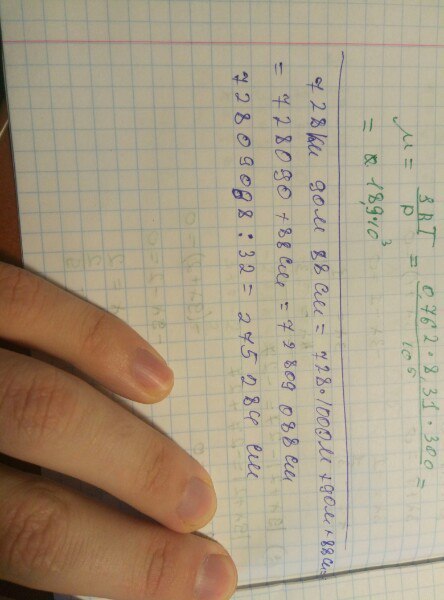 μ = ρRT / P = 0,762 · 8,31 · 300 / 10⁵ =
= 18,9·10³
728км 90м 88см = 728·1000м + 90м + 88см=
= 728090 + 88см = 72809088см
72809088 : 32 = 275284 см